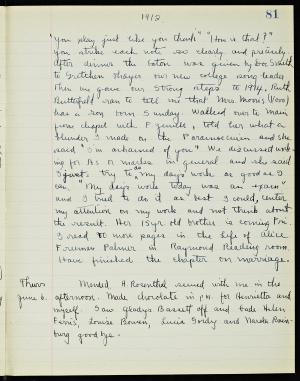 1912 81
"You play just like you think" "How is that?"
you strike each note so clearly and precisely
After dinner the baton was given by Dot Smith
to Gretchen Thayer our new college song leader
Then we gave our Strong steps to 1914, Ruth
Butterfield ran to tell me that Mrs. Morris (Voro)
has a son born Sunday. Walked over to main
from chapel with P Smellie, told her what a
blunder I made on the Paramoecium and she
said "I'm ashamed of you" We discussed work
ing for As or marks in general and she said
I just try to do my days work as good as I
can, "My days work today was an exam"
and I tried to do it as best I could, center
my attention on my work and not think about
the result. Her 15yr old brother is coming Fri.
I read 80 more pages in the Life of Alice
Freeman Palmer in Raymond Reading room.
Have finished the chapter on marriage.
Thurs
June 6.
Mended. H. Rosenthal sewed with me in the
afternoon. Made chocolate in p.m. for Henrietta and
myself. Saw Gladys Bassett off and bade Helen
Ferris, Louise Bowen, Lucia and
good bye.